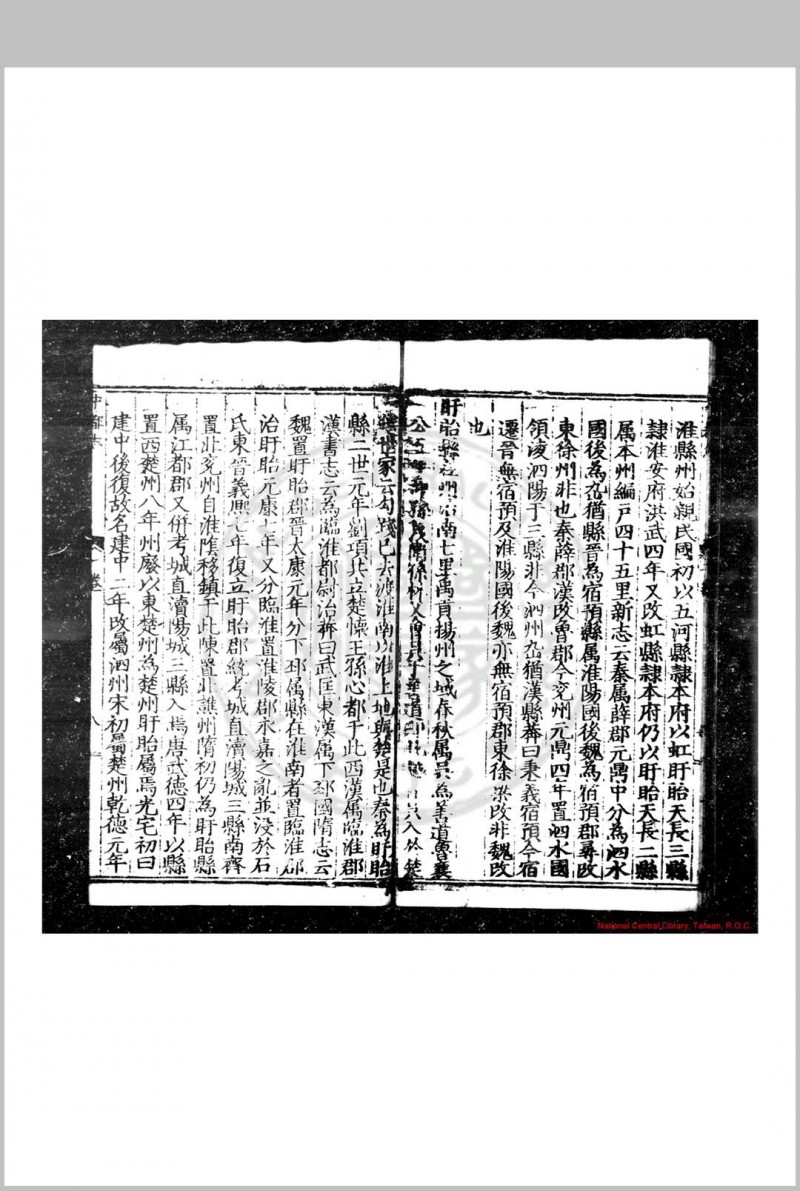 淮縣州始親民國初以五河縣隷本府以虹盱眙天長三縣
隷淮安府洪武四年又改虹縣隷本府仍以盱眙天長二縣
属本州編戶四十五里新志云秦属薛郡元鼎中分為泗水
國後為厹猶縣晉為宿預縣属淮陽國後魏為宿預郡尋改
東徐州非也秦薛郡漢改魯郡今兖州元鼎四年置泗水國
領淩泗陽于三縣非今泗州厹猶漢縣莾曰秉義宿預今宿
遷晉無宿預及淮陽國後魏亦無宿預郡東徐梁改非魏改
也
盱眙縣在州治南七里禹貢揚州之域春秋属吳為善道魯襄
公五年 善道即此 入於楚
世家云勾踐已去渡淮南以淮上地與楚是也秦為盱眙
縣二世元年劉項共立楚懷王孫心都于此西漢属臨淮郡
漢書志云為臨淮都尉治莾曰武匡東漢属下邳國隋志云
魏置盱眙郡晉太康元年分下邳属縣在淮南者置臨淮郡
治盱眙元康七年又分臨淮置淮陵郡永嘉之亂並没於石
氏東晉義熙七年復立盱眙郡統考城直瀆陽城三縣南齊
置北兖州自淮隂移鎮于此陳置北譙州隋初仍為盱眙縣
属江都郡又併考城直瀆陽城三縣入焉唐武德四年以縣
置西楚州八年州廢以東楚州為楚州盱眙屬焉光宅初曰
建中後復故名建中二年改屬泗州宋初屬楚州乾德元年
中都志
National Central Library, Taiwan, R.O.C.